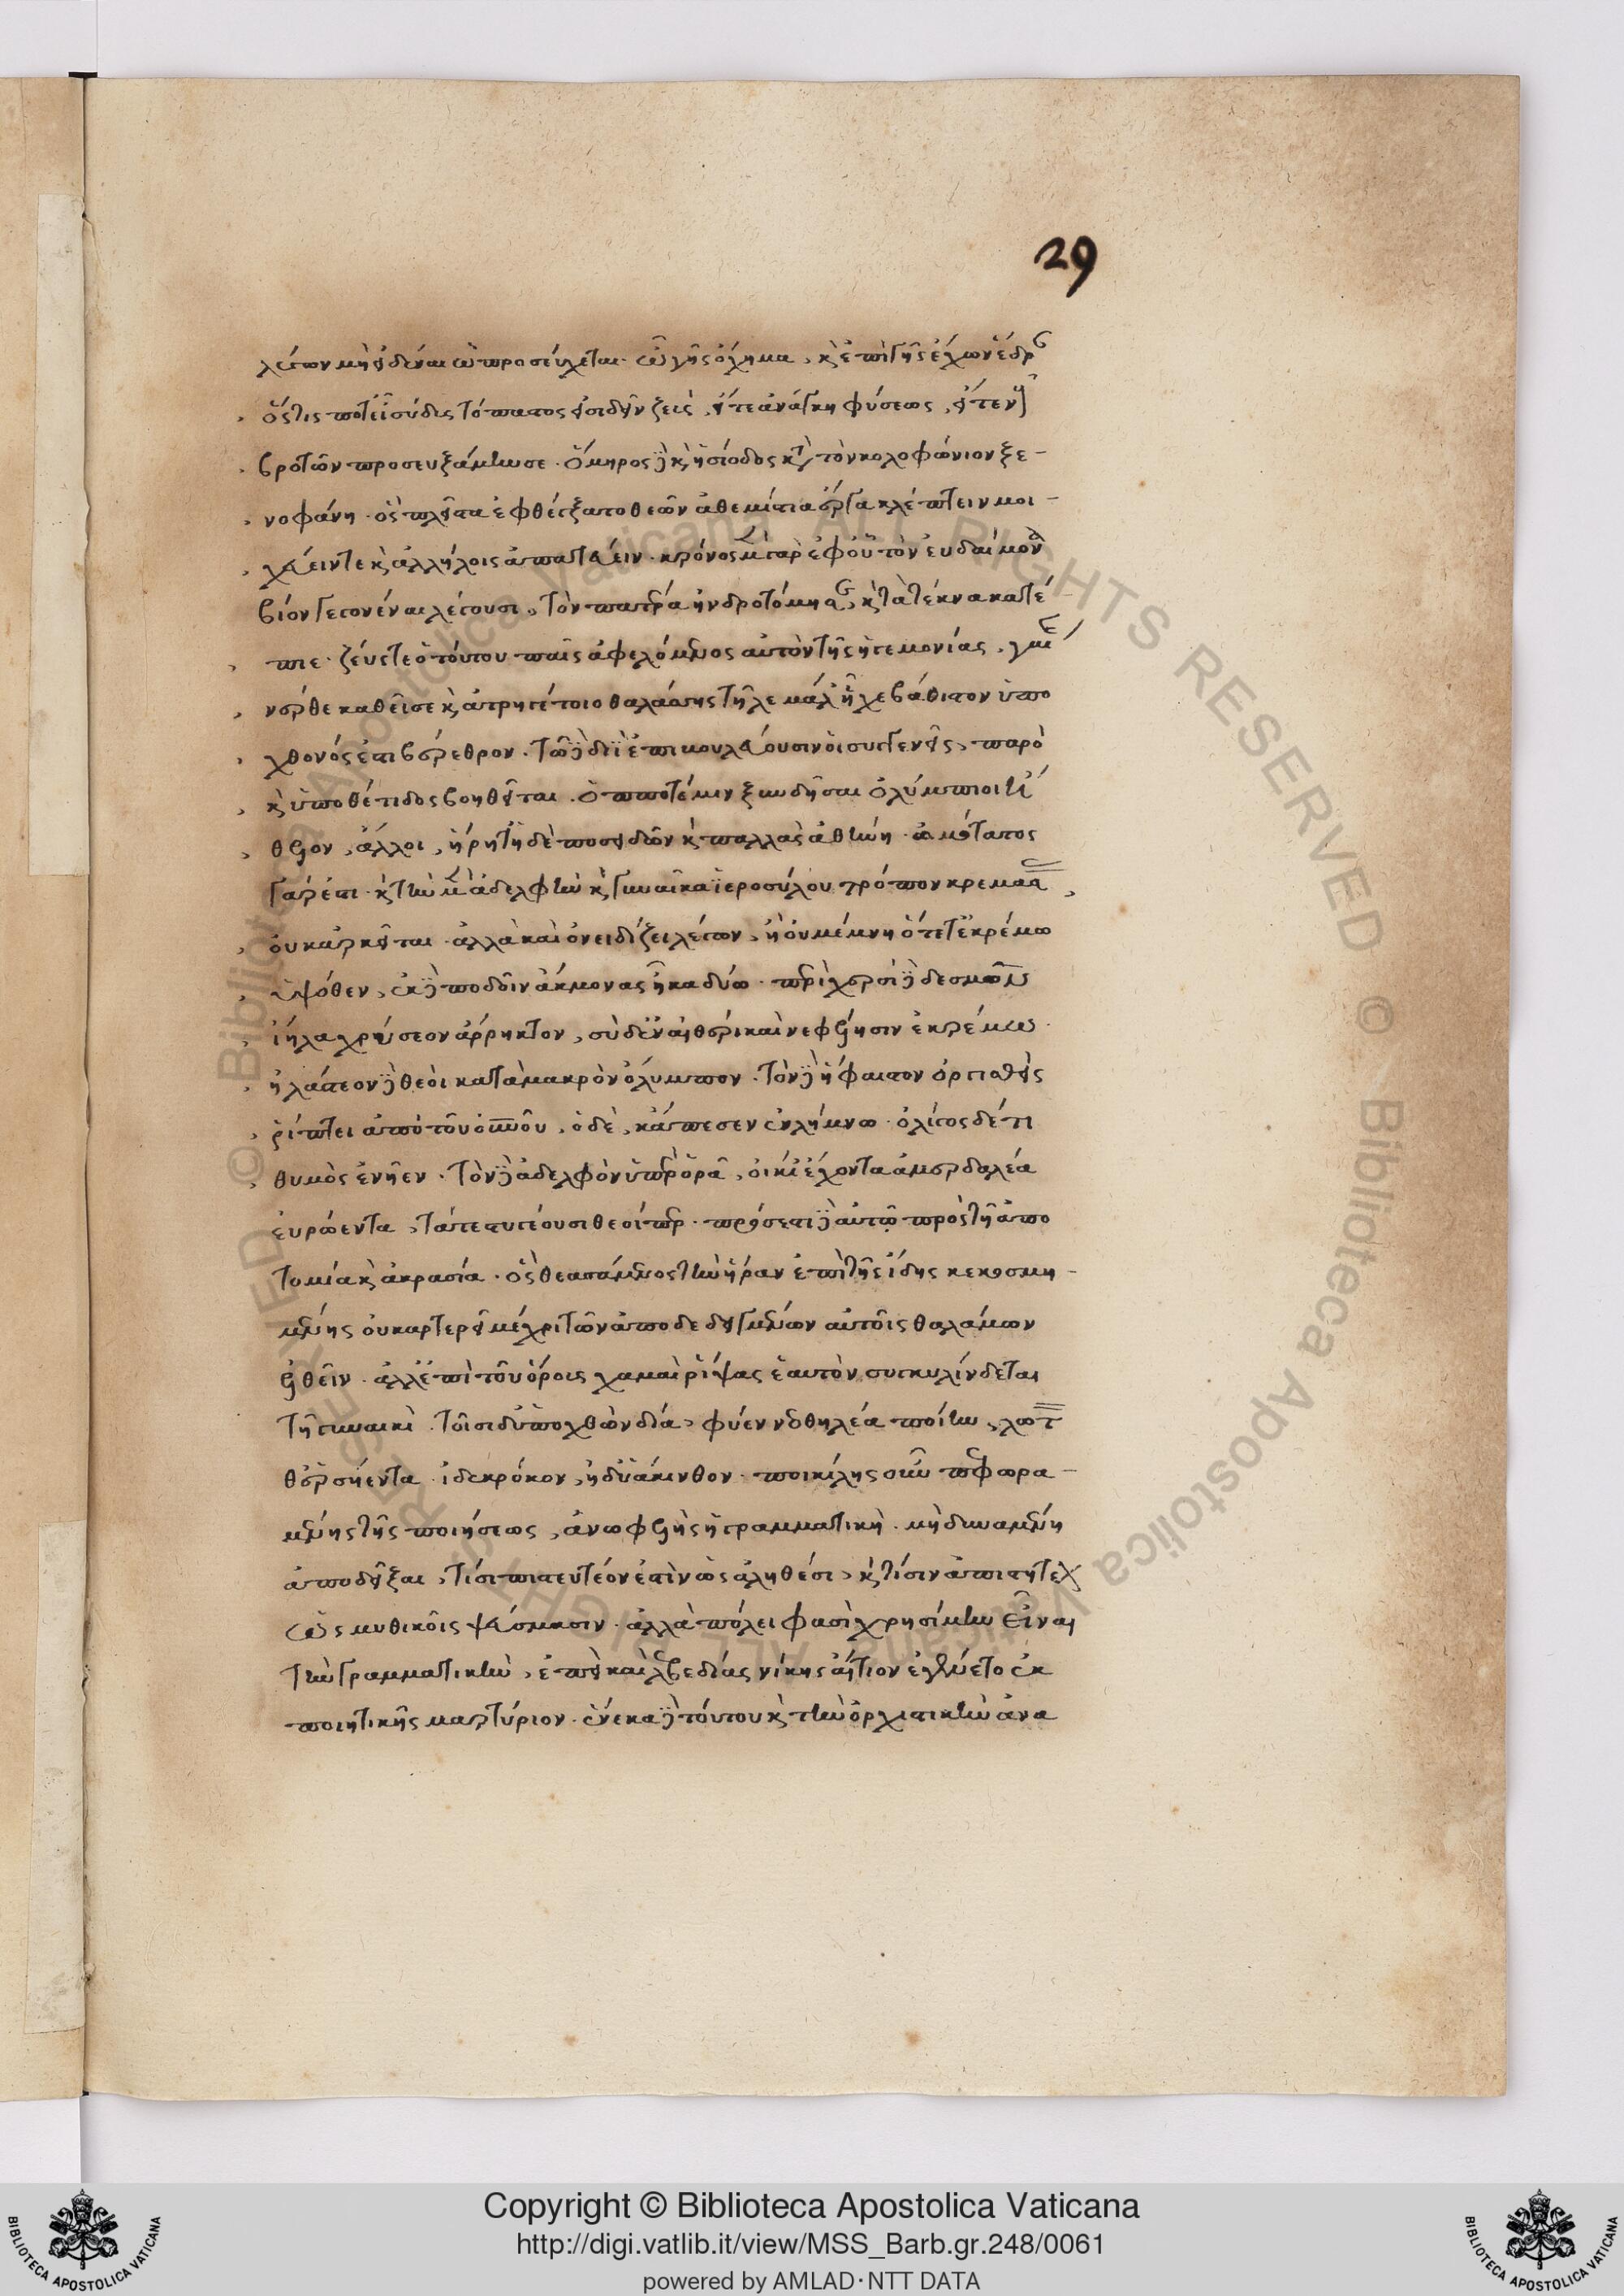 29
λέγων μὴ εἰδέναι ᾧ προσεύχεται· ὦ γῆς ὄχημα, κὲ ἐπὶ γῆς ἔχων ἕδραν
ὅστις ποτ' εἶ σύ δυστόπαστος εἰσιδεῖν ζεὺς, εἴτε ἀνάγκη φύσεως, εἴτε νοῦς
βροτῶν προσευξάμην σε. ὅμηρος δὲ κ ἡσίοδος κατὰ τὸν κολοφώνιον ξε-
νοφάνη· ὃς πλεῖστα ἐφθέγξατο θεῶν ἀθεμίστια ἔργα κλέπτειν μοι-
χεύειν τε κ ἀλλήλοις ἀπατεύειν. κρόνος μὲν γὰρ ἐφ' οὗ τὸν εὐδαίμονα
βίον γεγονέναι λέγουσι, τὸν πατέρα ἠνδροτόμησε, κ τὰ τέκνα κατέ
πιε· ζεύς τε ὁ τούτου παῖς ἀφελόμενος αὐτὸν τῆς ἡγεμονίας, γαίης
νέρθε καθεῖσε κ ἀτρυγέτοιο θαλάσσης τῆλε μάλ' ἧχε βάθιστον ὑπο
χθονός ἐστι βέρεθρον. τῶ δὲ διῒ ἐπιβουλεύουσιν οἱ συγγενεῖς, παρὸ
κ ὑπὸ θέτιδος βοηθεῖται. ὁππότε μιν ξυνδῆσαι ὀλύμπιοι ἤ
θελον, ἄλλοι, ἥρη τ' ἠδὲ ποσειδῶν κ παλλὰς ἀθήνη. ὠμότατος
γάρ ἐστι· κ τὴν μὲν ἀδελφὴν κ γυναῖκα ἱεροσύλου τρόπον κρεμάσας
οὐκ ἀρκεῖται. ἀλλὰ καὶ ὀνειδίζει λέγων, ἦ οὐ μέμνη ὅτε τ' ἐκρέμω
ὑψόθεν, ἐκ δὲ ποδοῖν ἄκμονας ἧκα δύο· περὶ χερσὶ δὲ δεσμὸν
ἴηλα χρύσεον ἄρρηκτον, σὺ δ' ἐν αἰθέρι καὶ νεφέλησιν ἐκρέμω·
ἠλάστεον δὲ θεοὶ κατὰ μακρὸν ὄλυμπον. τὸν δὲ ἥφαιστον ὀργισθεὶς
ῥίπτει ἀπὸ τοῦ οὐρανοῦ, ὁ δὲ, κάππεσεν ἐν λήμνω· ὀλίγος δέ τι
θυμὸς ἐνῆεν. τὸν δὲ ἀδελφὸν ὑπερορᾶ, οἰκί' ἔχοντα σμερδαλέα
εὐρώεντα, τά τε στυγέουσι θεοί περ. πρόσεστι δὲ αὐτῷ πρὸς τῇ ἀπο
τομία κ ἀκρασία. ὃς θεασάμενος τὴν ἥραν ἐπὶ τῆς ἴδης κεκοσμη-
μένης οὐ καρτερεῖ μέχρι τῶν ἀποδεδειγμένων αὐτοῖς θαλάμων
ἐλθεῖν. ἀλλ' ἐπὶ τοῦ ὄρους χαμαὶ ῥίψας ἑαυτὸν συγκυλίνδεται
τῇ γυναικὶ. τοῖσι δ' ὑπὸ χθὼν δῖα, φύεν νεοθηλέα ποίην, λωτόν
θ' ἑρσήεντα· ἰδὲ κρόκον, ἠδ' ὑάκινθον· ποικίλης οὖν πεφωρα-
μένης τῆς ποιήσεως, ἀνωφελὴς ἡ γραμματικὴ. μὴ δυναμένη
ἀποδεῖξαι, τίσι πιστευτέον ἐστὶν ὡς ἀληθέσι, κ τίσιν ἀπιστητέον
ὡς μυθικοῖς ψεύσμασιν. ἀλλὰ πόλει φασὶ χρησίμην εἶναι
τὴν γραμματικὴν, ἐπεὶ καὶ λεβεδίας νίκης αἴτιον ἐγένετο ἐκ
ποιητικῆς μαρτύριον. ἕνεκα δὲ τούτου κ τὴν ὀρχιστικὴν ἀνα
Copyright © Biblioteca Apostolica Vaticana
http://digi.vatlib.it/view/MSS_Barb.gr.248/0061
powered by AMLAD·NTT DATA